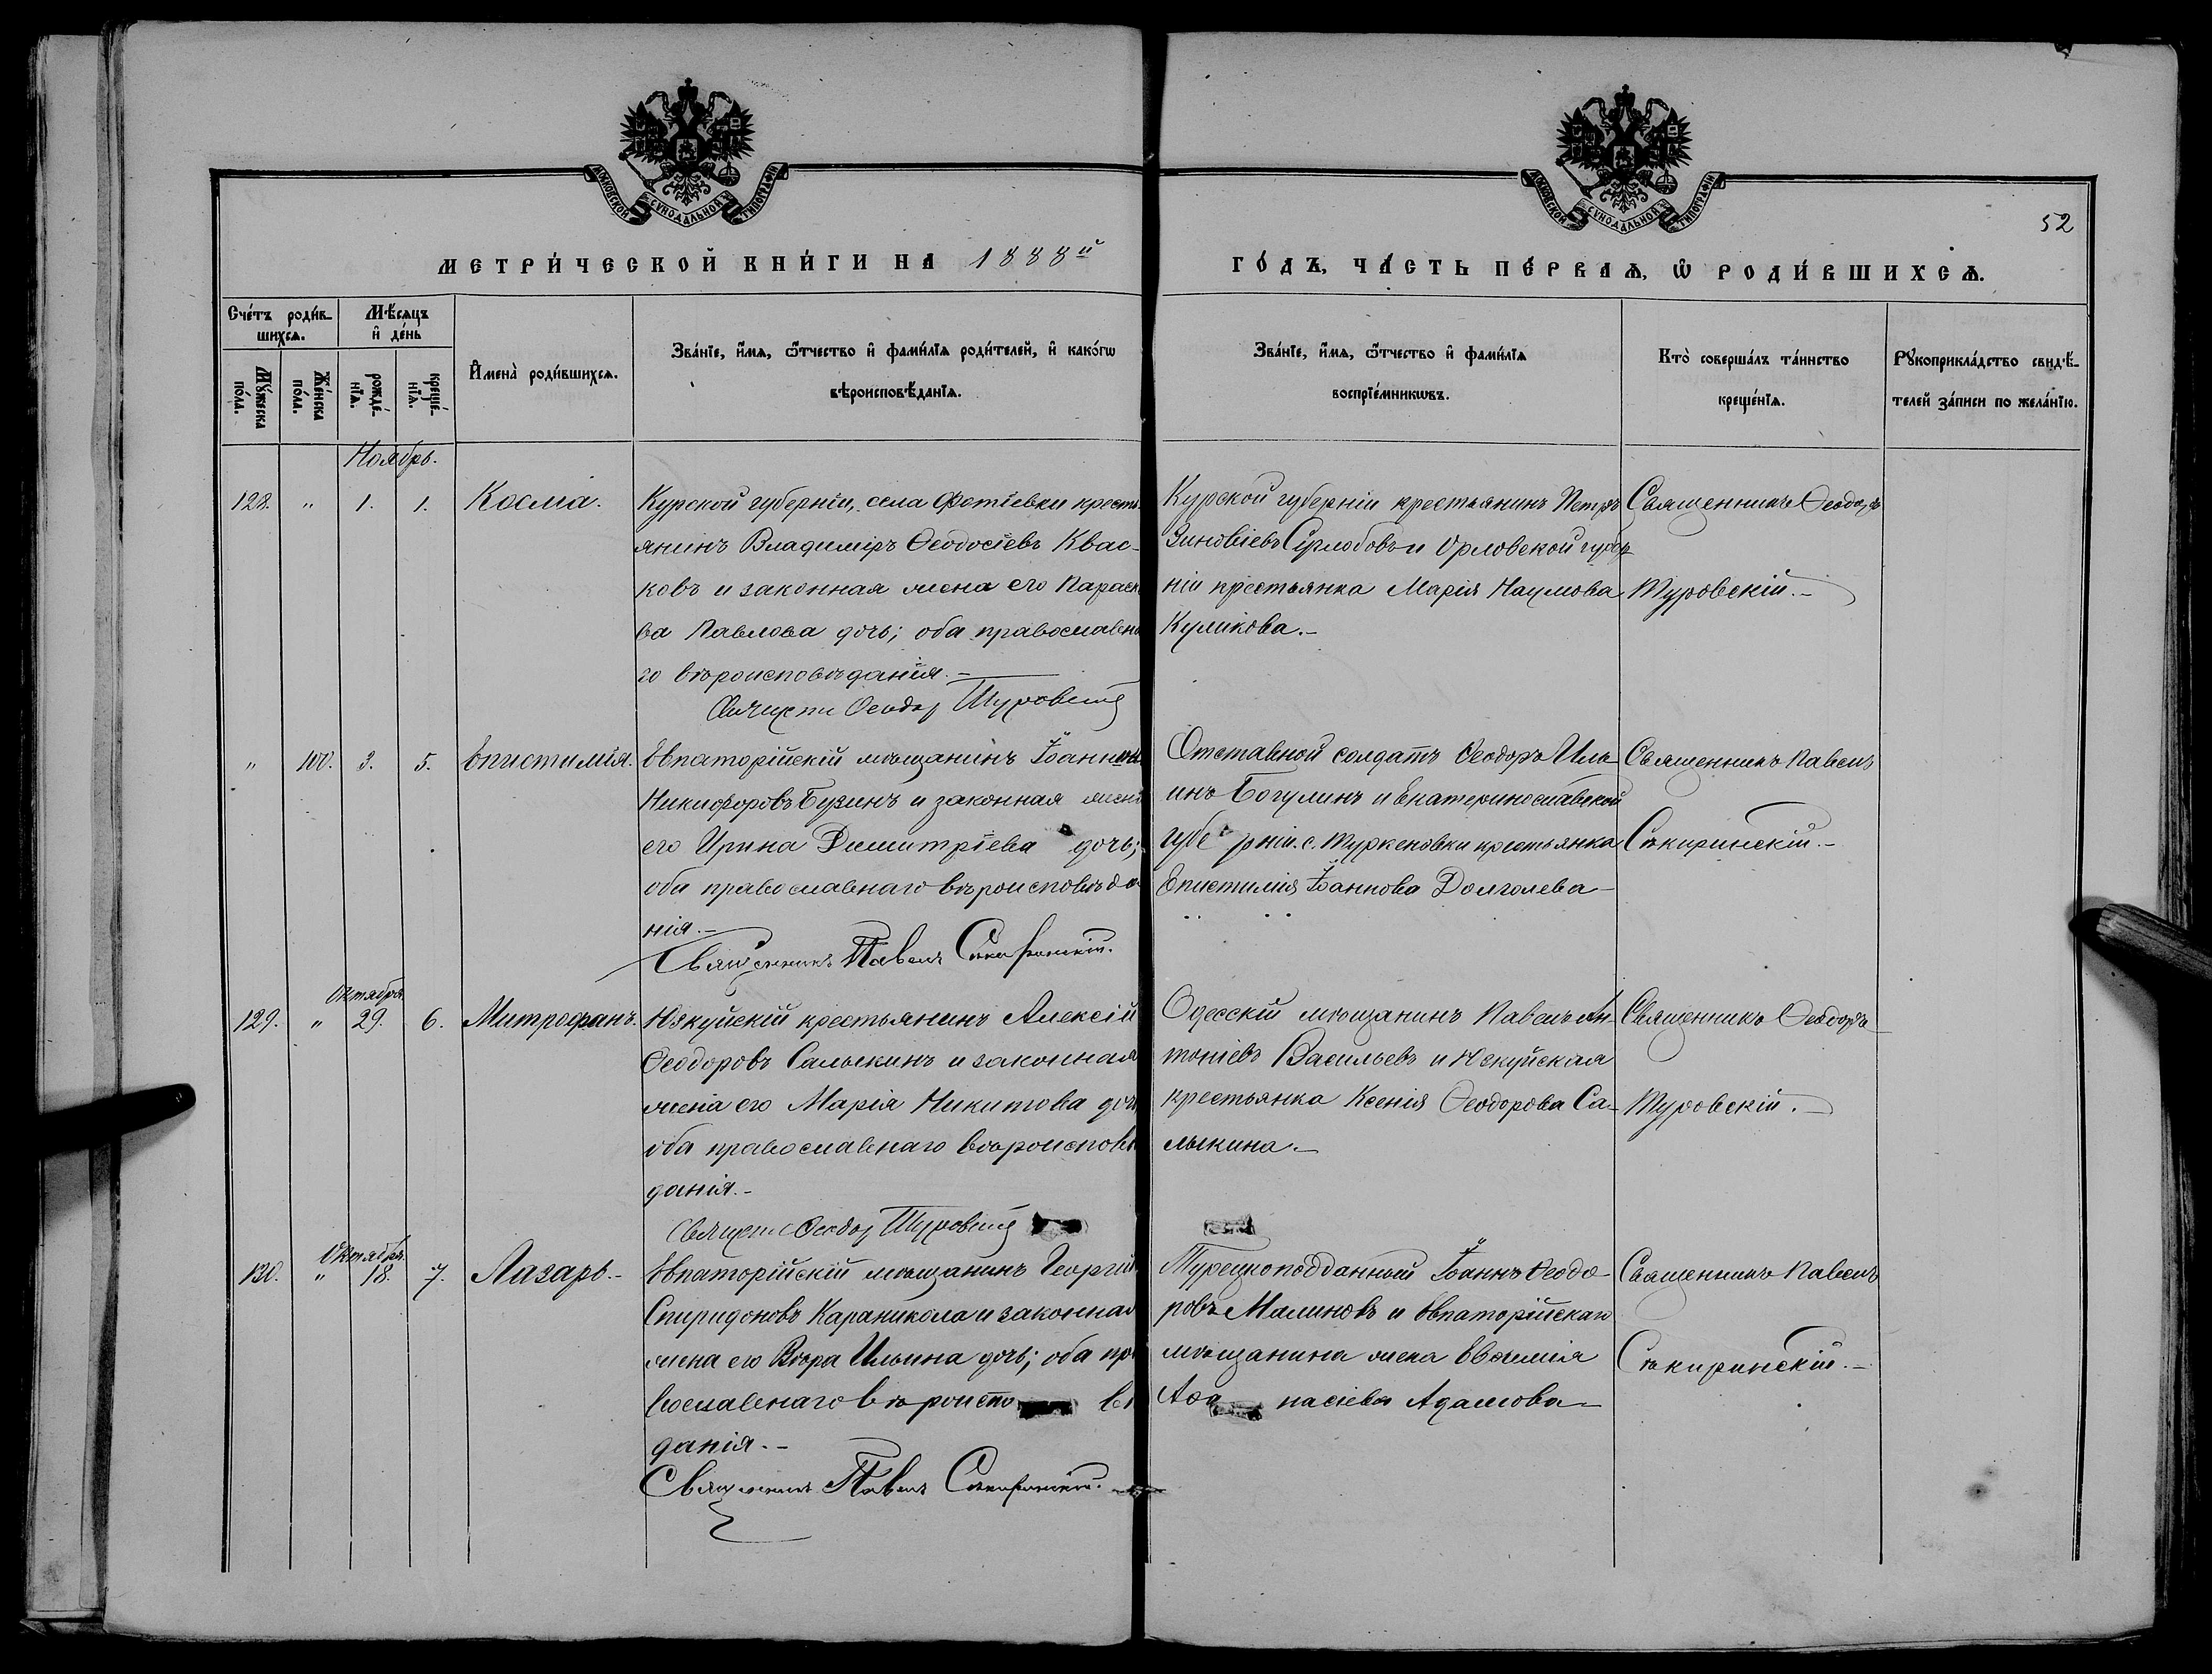 МОСКОВСКОЙ СУНОДАЛЬНОЙ ТИПОГРАФІИ
МОСКОВСКОЙ СУНОДАЛЬНОЙ ТИПОГРАФІИ
52
МЕТРИ́ЧЕСКОЙ КНИ́ГИ НА 1888й
ГО́ДЪ, ЧА́СТЬ ПЕ́РВАѦ, Ѡ҆ РОДИ́ВШИХСѦ.
Сче́тъ роди́в-
шихсѧ.
Мѣ́сѧцъ
и҆ де́нь
Му́жеска
по́ла.
Же́нска
по́ла.
рожде́-
нїѧ.
креще́-
нїѧ.
И҆мена̀ роди́вшихсѧ.
Зва́нїе, и҆́мѧ, ѻ҆́тчество и҆ фами́лїѧ роди́телей, и҆ како́гѡ
вѣроисповѣ́данїѧ.
Зва́нїе, и҆́мѧ, ѻ҆́тчество и҆ фами́лїѧ
воспрїе́мникѡвъ.
Кто̀ соверша́лъ та́инство
креще́нїѧ.
Рꙋкоприкла́дство свидѣ́-
телей за́писи по жела́нїю.
Ноябрь.
128. " 1. 1. Косма.
Курской губерніи, села Фотіевки кресть-
янинъ Владиміръ Ѳеодосіевъ Квас-
ковъ и законная жена его Параске
ва Павлова дочь; оба православна
го вѣроисповѣданія.-
Ѳеодор Туровскій
Курской губерніи крестьянинъ Петръ
Зиновіевъ и Орловской губер
ніи крестьянка Марія Наумова
Куликова.-
Священникъ Ѳеодоръ
Туровскій.-
" 100. 3. 5. Епистимія.
Евпаторійскій мѣщанинъ Іоаннъ
Никифоровъ Бузинъ и законная жена
его Ирина Димитріева дочь;
оба православнаго вѣроисповѣда
нія.-
Священникъ Павелъ Сѣкиринскій.
Отставной солдатъ Ѳеодоръ Иль-
инъ Богулинъ и Екатеринославской
губе рніи. с. Туркеновки крестьянка
Епистимія Іоаннова Долголева-
Священникъ Павелъ
Сѣкиринскій.-
Октября
129. " 29. 6. Митрофанъ.
крестьянинъ Алексій
Ѳеодоровъ Салыкинъ и законная
жена его Марія Никитова дочь
оба православнаго вѣроисповѣ
данія.-
Ѳеодор Туровскій
Одесскій мѣщанинъ Павелъ Ан-
тоніевъ Васильевъ и
крестьянка Ксенія Ѳеодорова Са-
лыкина.-
Священникъ Ѳеодоръ
Туровскій.-
Октябрь.
130. " 18. 7. Лазарь.-
Евпаторійскій мѣщанинъ Георгій
Спиридоновъ Караникола и законная
жена его Вѣра Ильина дочь; оба пра
вославнаго вѣроиспо вѣ
данія.-
Священникъ Павелъ Сѣкиринскій.
Турецкоподданный Іоаннъ Ѳеодо-
ровъ Малиновъ и Евпаторійскаго
мѣщанина жена Евѳимія
Аѳа насіева Адамова-
Священникъ Павелъ
Сѣкиринскій.-